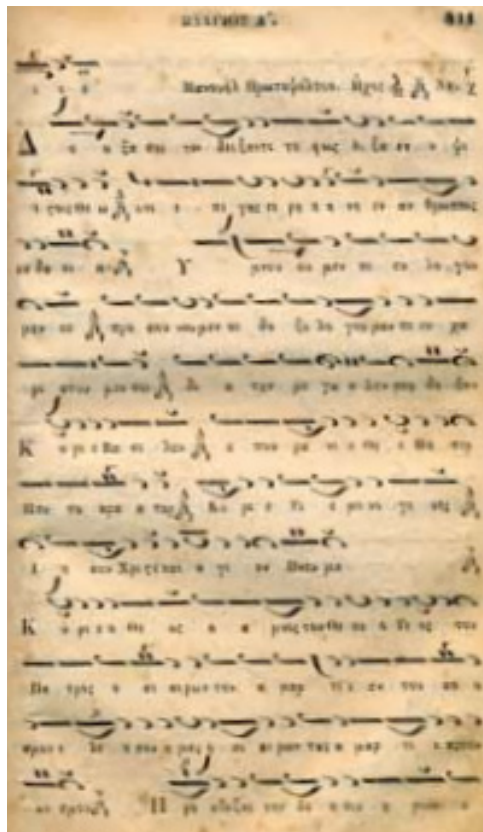 Μανουὴλ Πρωτοψάλτου. Ἦχος
Δ ο ο ξα σοι τω δει ξαντι το φως δο ξα εν υ ψι
ι στοις θε ω και ε πι γης ει ρη η νη εν αν θρωποις
ευ δο κι α Υ μνου ου μεν σε ευ λο γου
μεν σε προ σκυ νου μεν σε δο ξο λο γου μεν σε ευ χα
ρι στου μεν σοι δι α την με γα α λην σου δο ξαν
Κ υ ρι ε Βα σι λευ ε που ρα νι ε Θε ε Πα τερ
Παν το κρα α τορ Κυ ρι ε Υι ε μο νο γε νες
Ι η σου Χριστε και α γι ον Πνευμα
Κ υ ρι ε ο Θε ος ο α μνος του Θε ου ο Υι ος του
Πα τρος ο αι ρων την α μαρ τι αν του κο ο
σμου ε λε η σον η μας ο αι ρων τας α μαρ τι ας του
κο σμου Π ρο σδεξαι την δε η σιν η μων